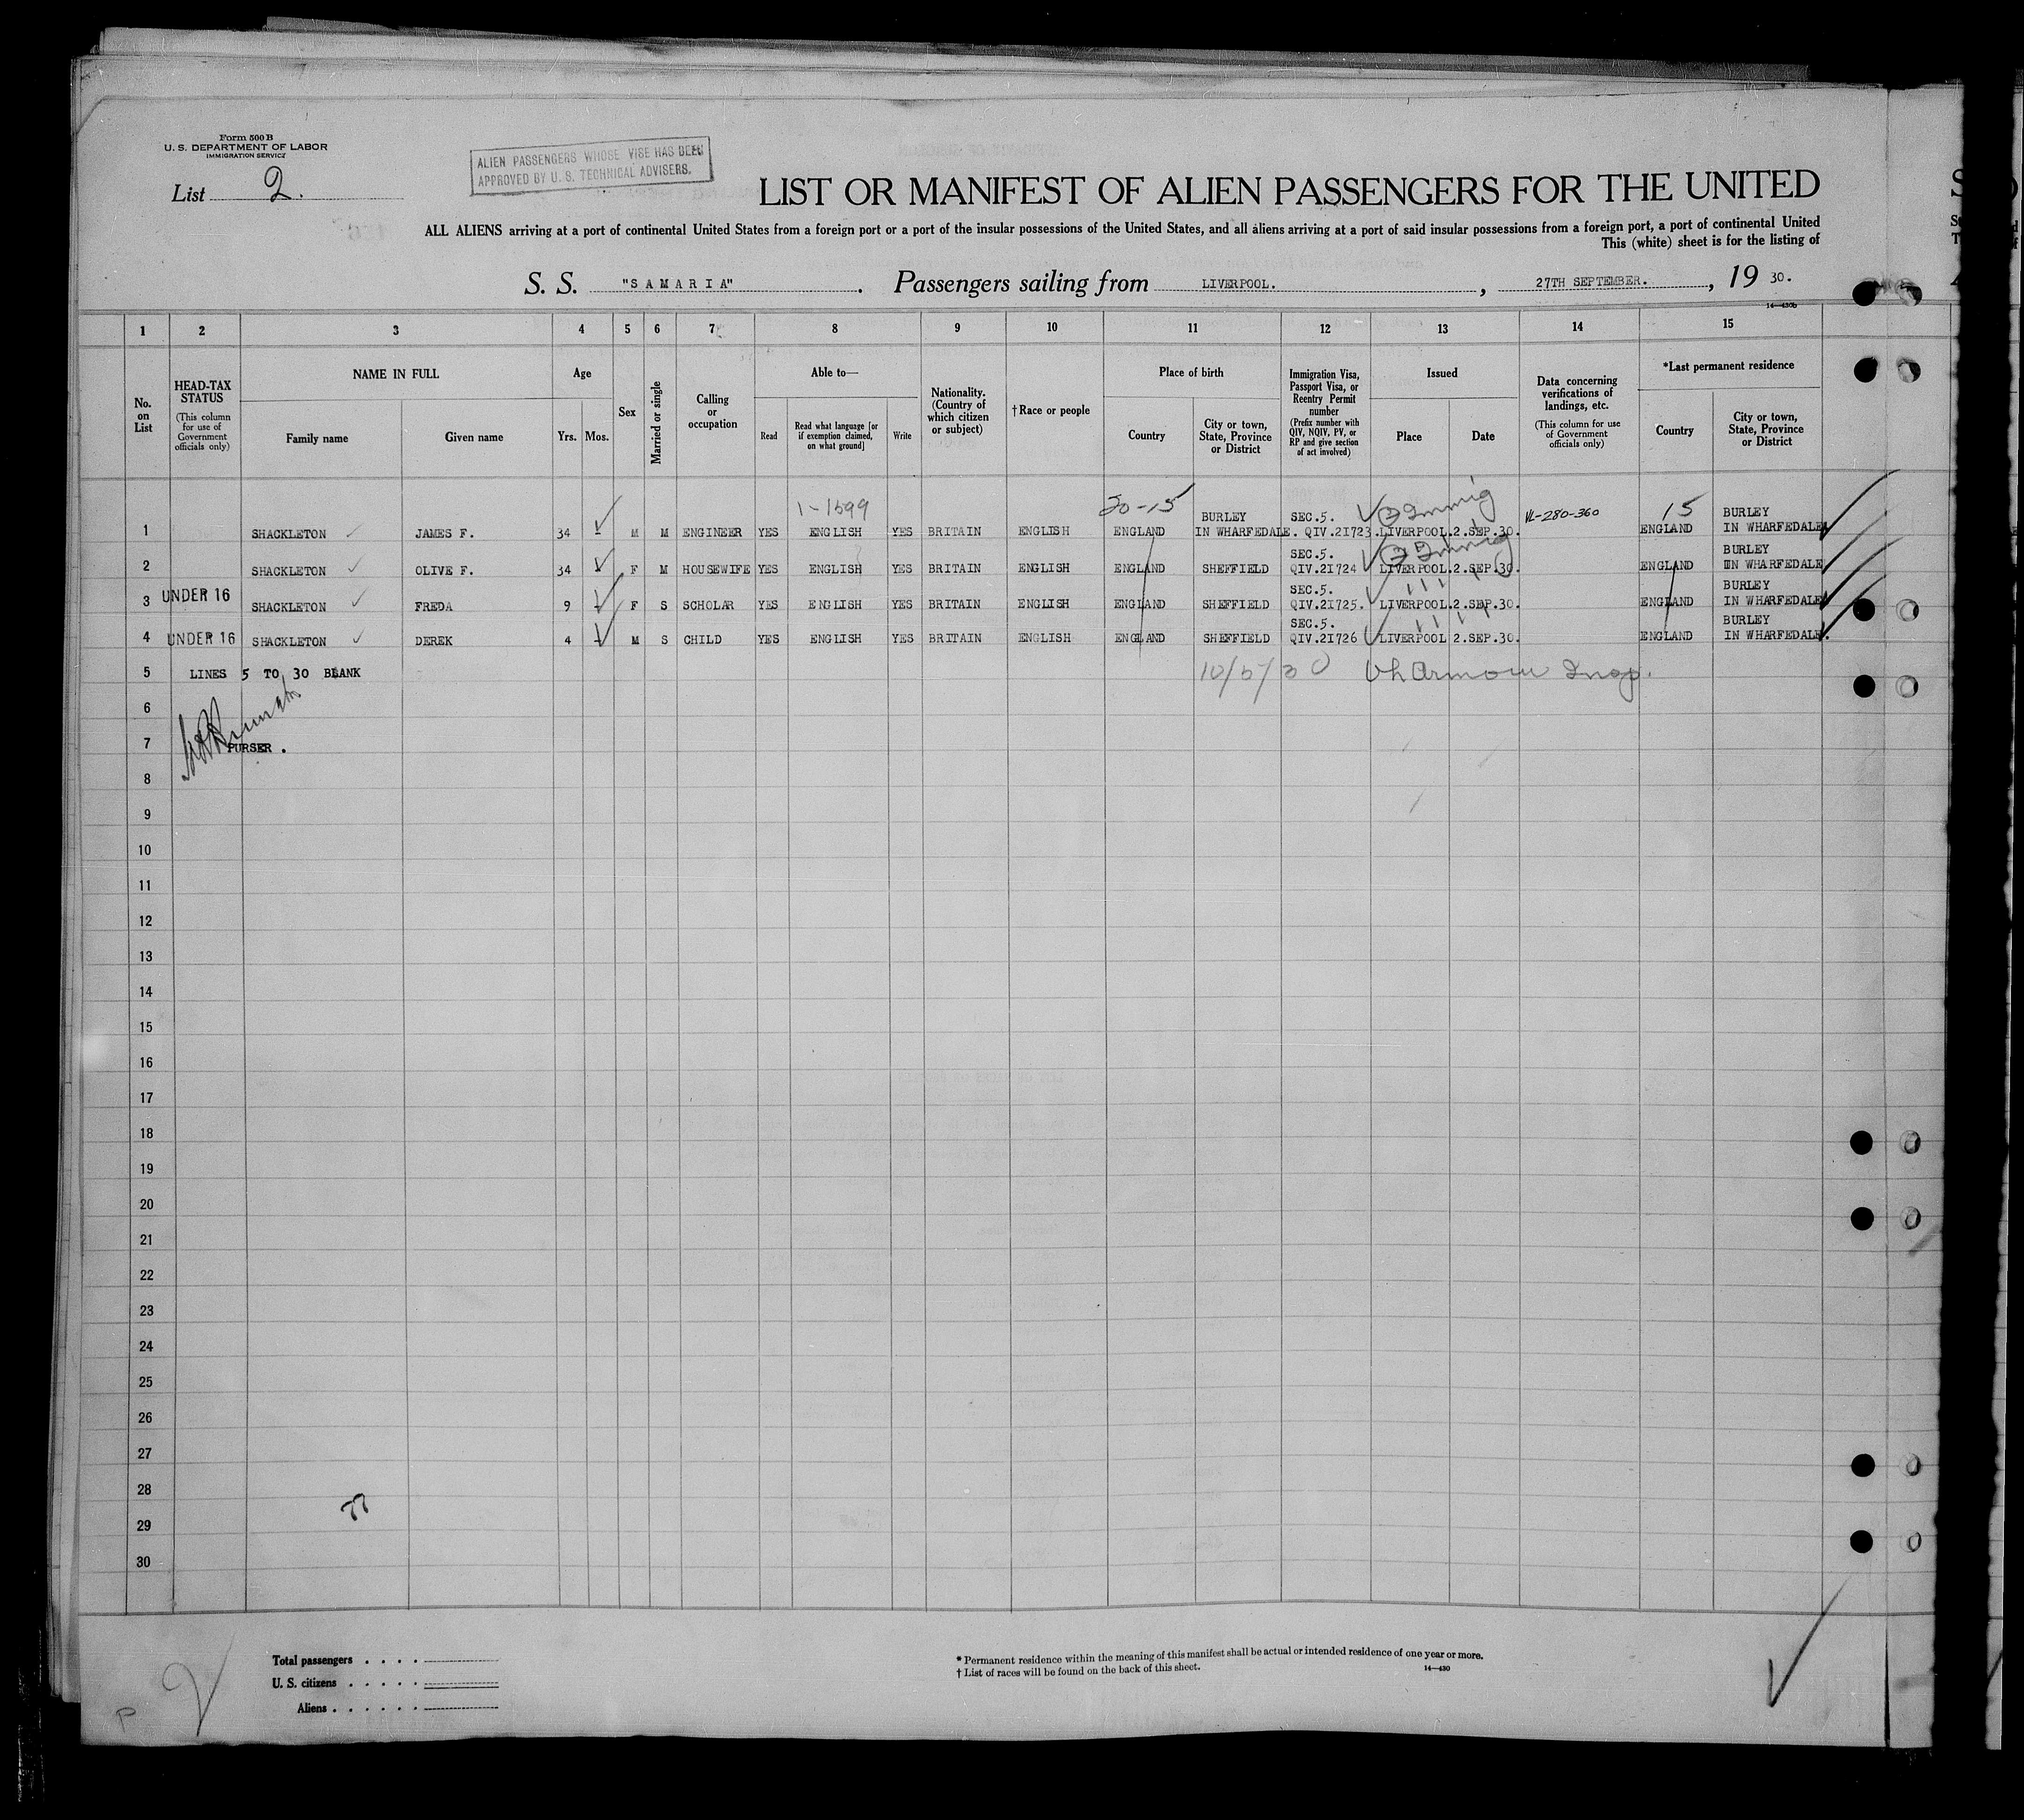 Form 500 B
U. S. DEPARTMENT OF LABOR
IMMIGRATION SERVICE
List 2.
ALIEN PASSENGERS WHOSE VISE HAS BEEN
APPROVED BY U. S. TECHNICAL ADVISERS.
LIST OR MANIFEST OF ALIEN PASSENGERS FOR THE UNITED
ALL ALIENS arriving at a port of continental United States from a foreign port or a port of the insular possessions of the United States, and all aliens arriving at a port of said insular possessions from a foreign port, a port of continental United
This (white) sheet is for the listing of
S. S. "SAMARIA" . Passengers sailing from LIVERPOOL. , 27TH SEPTEMBER. , 19 30.
14—430b
1 2 3 4 5 6 7 8 9 10 11 12 13 14 15
No. on List
HEAD-TAX STATUS
(This column for use of Government officials only)
NAME IN FULL
Family name
Given name
Age
Yrs.
Mos.
Sex
Married or single
Calling or occupation
Able to—
Read
Read what language [or if exemption claimed, on what ground]
Write
Nationality. (Country of which citizen or subject)
† Race or people
Place of birth
Country
City or town, State, Province or District
Immigration Visa, Passport Visa, or Reentry Permit number
(Prefix number with QIV, NQIV, PV, or RP and give section of act involved)
Issued
Place
Date
Data concerning verifications of landings, etc.
(This column for use of Government officials only)
*Last permanent residence
Country
City or town, State, Province or District
1-1599 20-15 15
1 SHACKLETON JAMES F. 34 M M ENGINEER YES ENGLISH YES BRITAIN ENGLISH ENGLAND BURLEY IN WHARFEDALE. SEC.5. QIV.21723. LIVERPOOL. 2.SEP.30. VL-280-360 ENGLAND BURLEY IN WHARFEDALE
2 SHACKLETON OLIVE F. 34 F M HOUSEWIFE YES ENGLISH YES BRITAIN ENGLISH ENGLAND SHEFFIELD SEC.5. QIV.21724 LIVERPOOL. 2.SEP.30. ENGLAND BURLEY IN WHARFEDALE
3 UNDER 16 SHACKLETON FREDA 9 F S SCHOLAR YES ENGLISH YES BRITAIN ENGLISH ENGLAND SHEFFIELD SEC.5. QIV.21725. LIVERPOOL. 2.SEP.30. ENGLAND BURLEY IN WHARFEDALE
4 UNDER 16 SHACKLETON DEREK 4 M S CHILD YES ENGLISH YES BRITAIN ENGLISH ENGLAND SHEFFIELD SEC.5. QIV.21726 LIVERPOOL 2.SEP.30. ENGLAND BURLEY IN WHARFEDALE.
5 LINES 5 TO 30 BLANK 10/5/30 Armour Insp.
6
7 PURSER .
8
9
10
11
12
13
14
15
16
17
18
19
20
21
22
23
24
25
26
27
28
29
30
Total passengers . . . .
U. S. citizens . . . . .
Aliens . . . . . .
* Permanent residence within the meaning of this manifest shall be actual or intended residence of one year or more.
† List of races will be found on the back of this sheet.
14—430
P